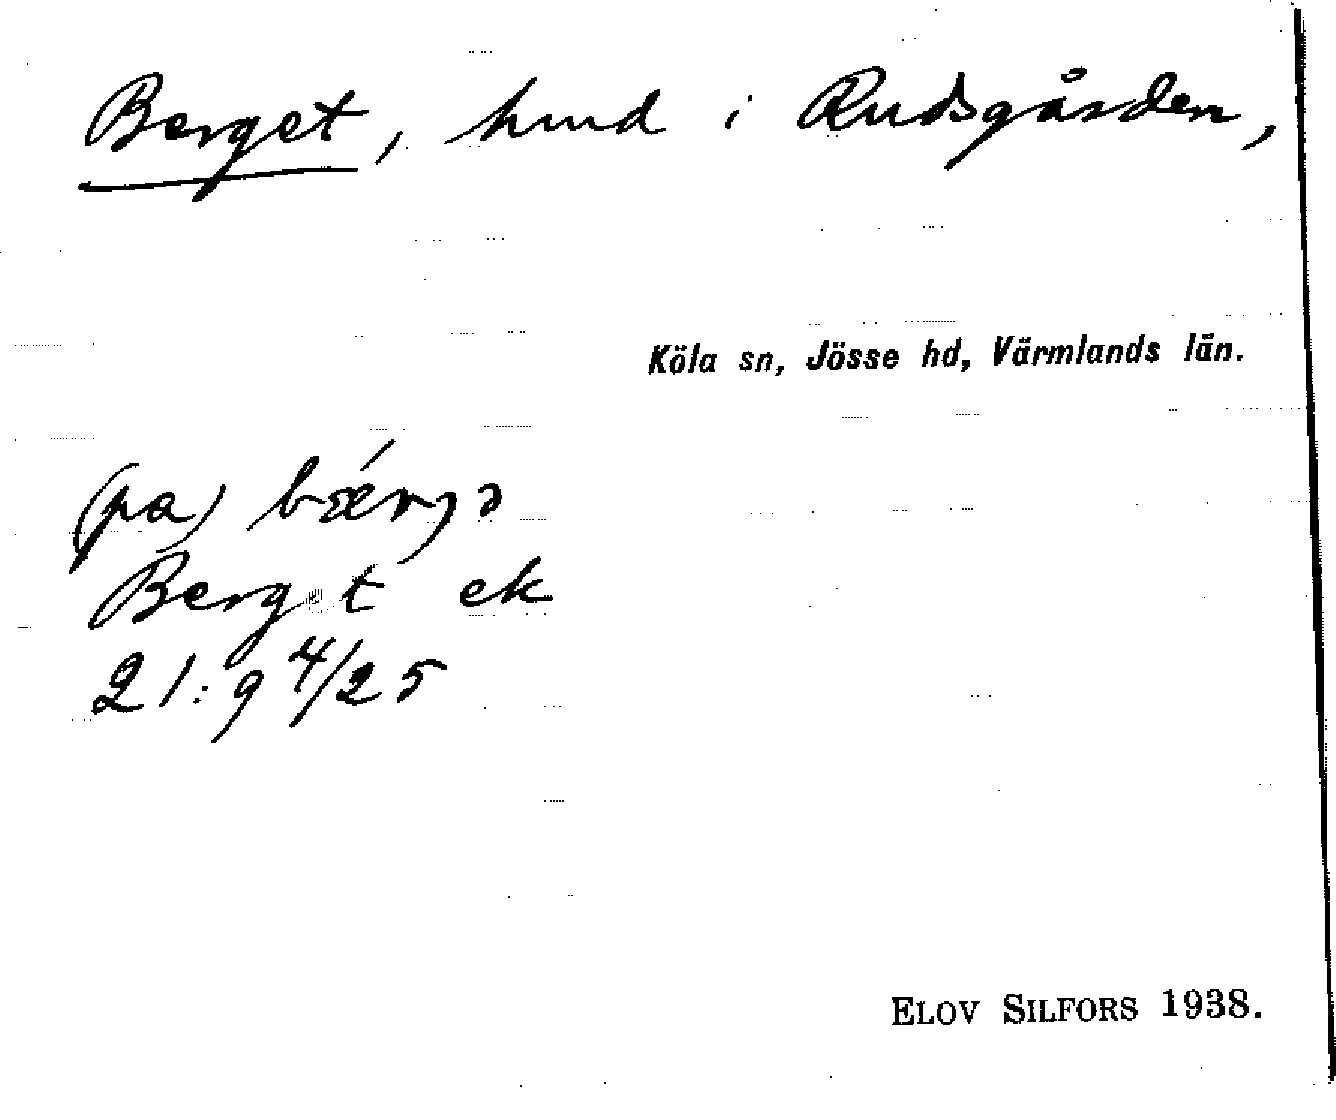 Berget, hmd i Rudsgården,
Köla sn, Jösse hd, Värmlands län.
(pa) bǽrjə
Berget ek
21:9 4/25
ELOV SILFORS 1938.